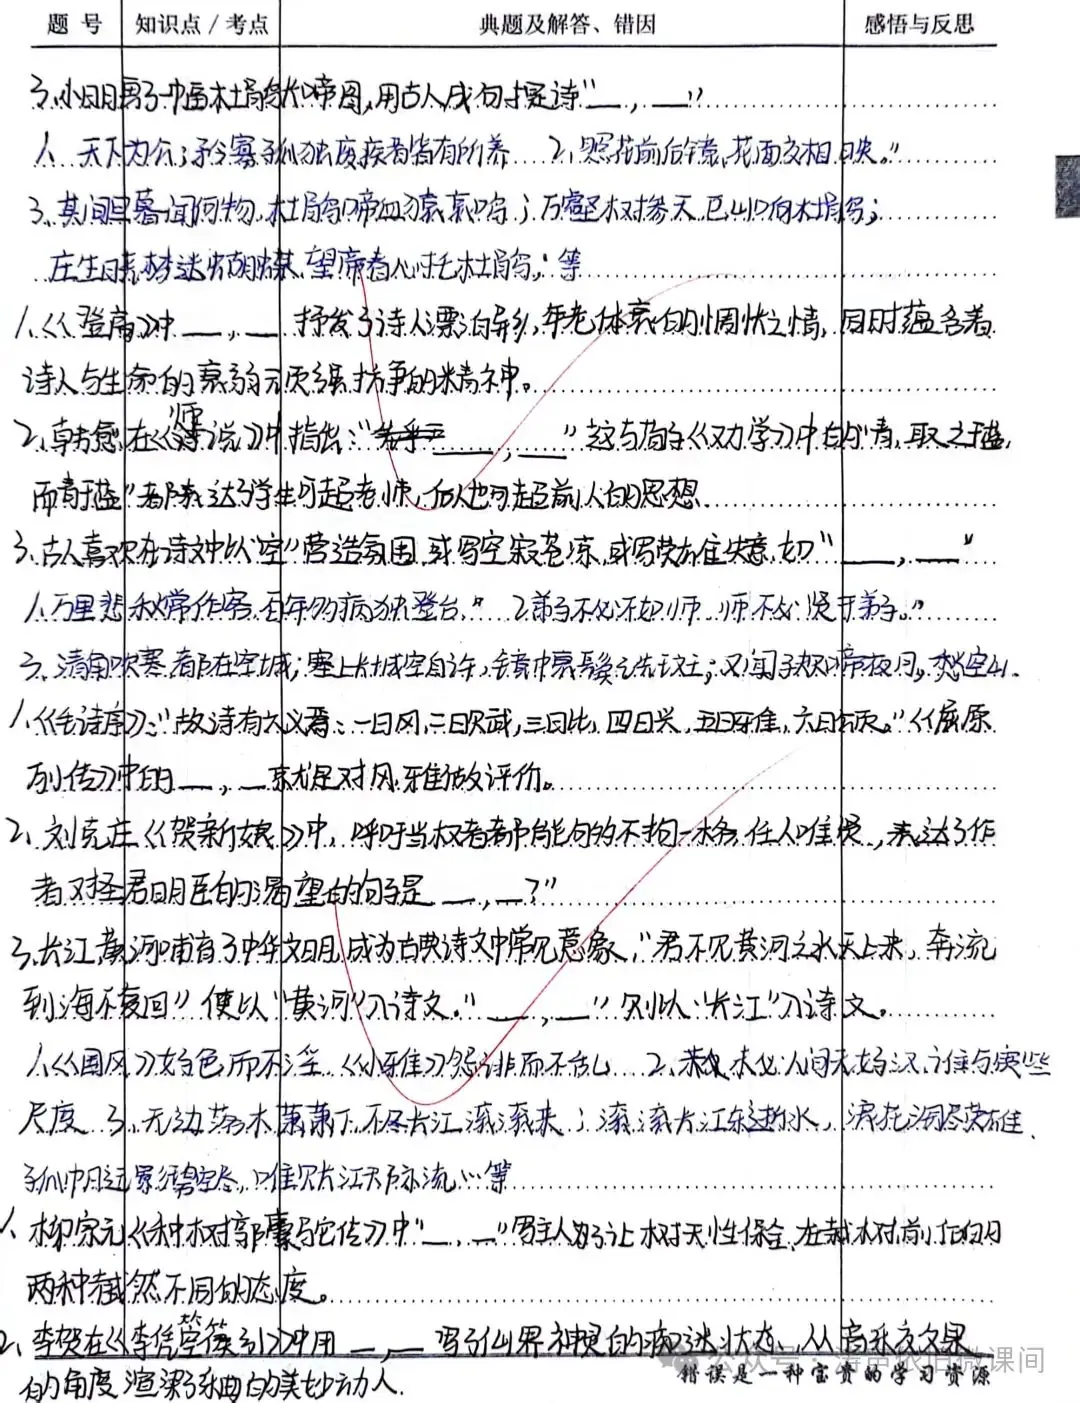 题 号 知识点/考点 典题及解答、错因 感悟与反思
3.小明画了一幅杜鹃啼血图,用古人成句题诗"__,__"
1、天下为公;矜寡孤独废疾者皆有所养 2、照花前后镜,花面交相映。"
3、其间旦暮闻何物,杜鹃啼血猿哀鸣;万壑树参天,千山响杜鹃;
庄生晓梦迷蝴蝶,望帝春心托杜鹃;等
1.《登高》中__,__抒发了诗人漂泊异乡,年老体衰的惆怅之情,同时蕴含着
诗人与生命的衰弱顽强抗争的精神。
2、韩愈在《师说》中指出:"__,__"这与荀子《劝学》中的"青,取之于蓝,
而青于蓝"都表达了学生可超老师,后人也可超前人的思想.
3、古人喜欢在诗文中以"空"营造氛围,或写空寂苍凉,或写英雄失意,如"__,__"
1.万里悲秋常作客,百年多病独登台。" 2.弟子不必不如师,师不必贤于弟子。"
3、清角吹寒,都在空城;塞上长城空自许,镜中衰鬓已先斑;又闻子规啼夜月,愁空山.
1、《毛诗序》:"故诗有六义焉:一曰风,二曰赋,三曰比,四曰兴,五曰雅,六曰颂。"《屈原
列传》中的__,__就是对风、雅做评价。
2、刘克庄《贺新郎》中,呼吁当权者都能够不拘一格,任人唯贤,表达了作
者对圣君明臣的渴望的句子是__,__?"
3、长江、黄河哺育了中华文明,成为古典诗文中常见意象,"君不见黄河之水天上来,奔流
到海不复回"便以"黄河"入诗文。"__,__"则以"长江"入诗文。
1、《国风》好色而不淫,《小雅》怨诽而不乱 2、未必人间无好汉,谁与宽些
尺度 3、无边落木萧萧下,不尽长江滚滚来;滚滚长江东逝水,浪花淘尽英雄、
孤帆远影碧空尽,唯见长江天际流;等
1、柳宗元《种树郭橐驼传》中"__,__"写主人为了让树天性保全,在栽树前后的
两种截然不同的态度。
2、李贺在《李凭箜篌引》中用__,__写仙界神灵的痴迷状态,从音乐效果
的角度渲染了乐曲的美妙动人.
公众号 涛声依旧微课间
错误是一种宝贵的学习资源